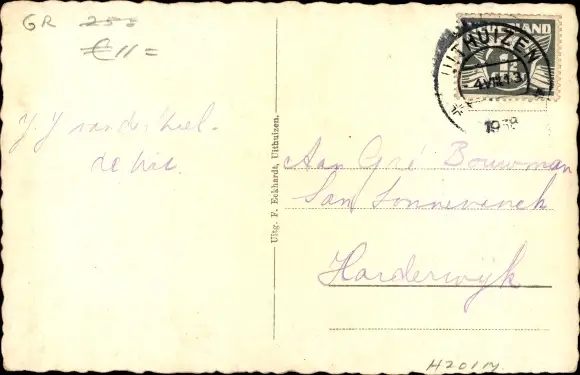 GR 25=
€ 11=
J. J. van der
de
Uitg. F. Eekhardt, Uithuizen.
NEDERLAND
1½
UITHUIZEN
4 VII 13
1938
Aan Gré Bouwman
San Sonnevanck
Harderwijk
H201M